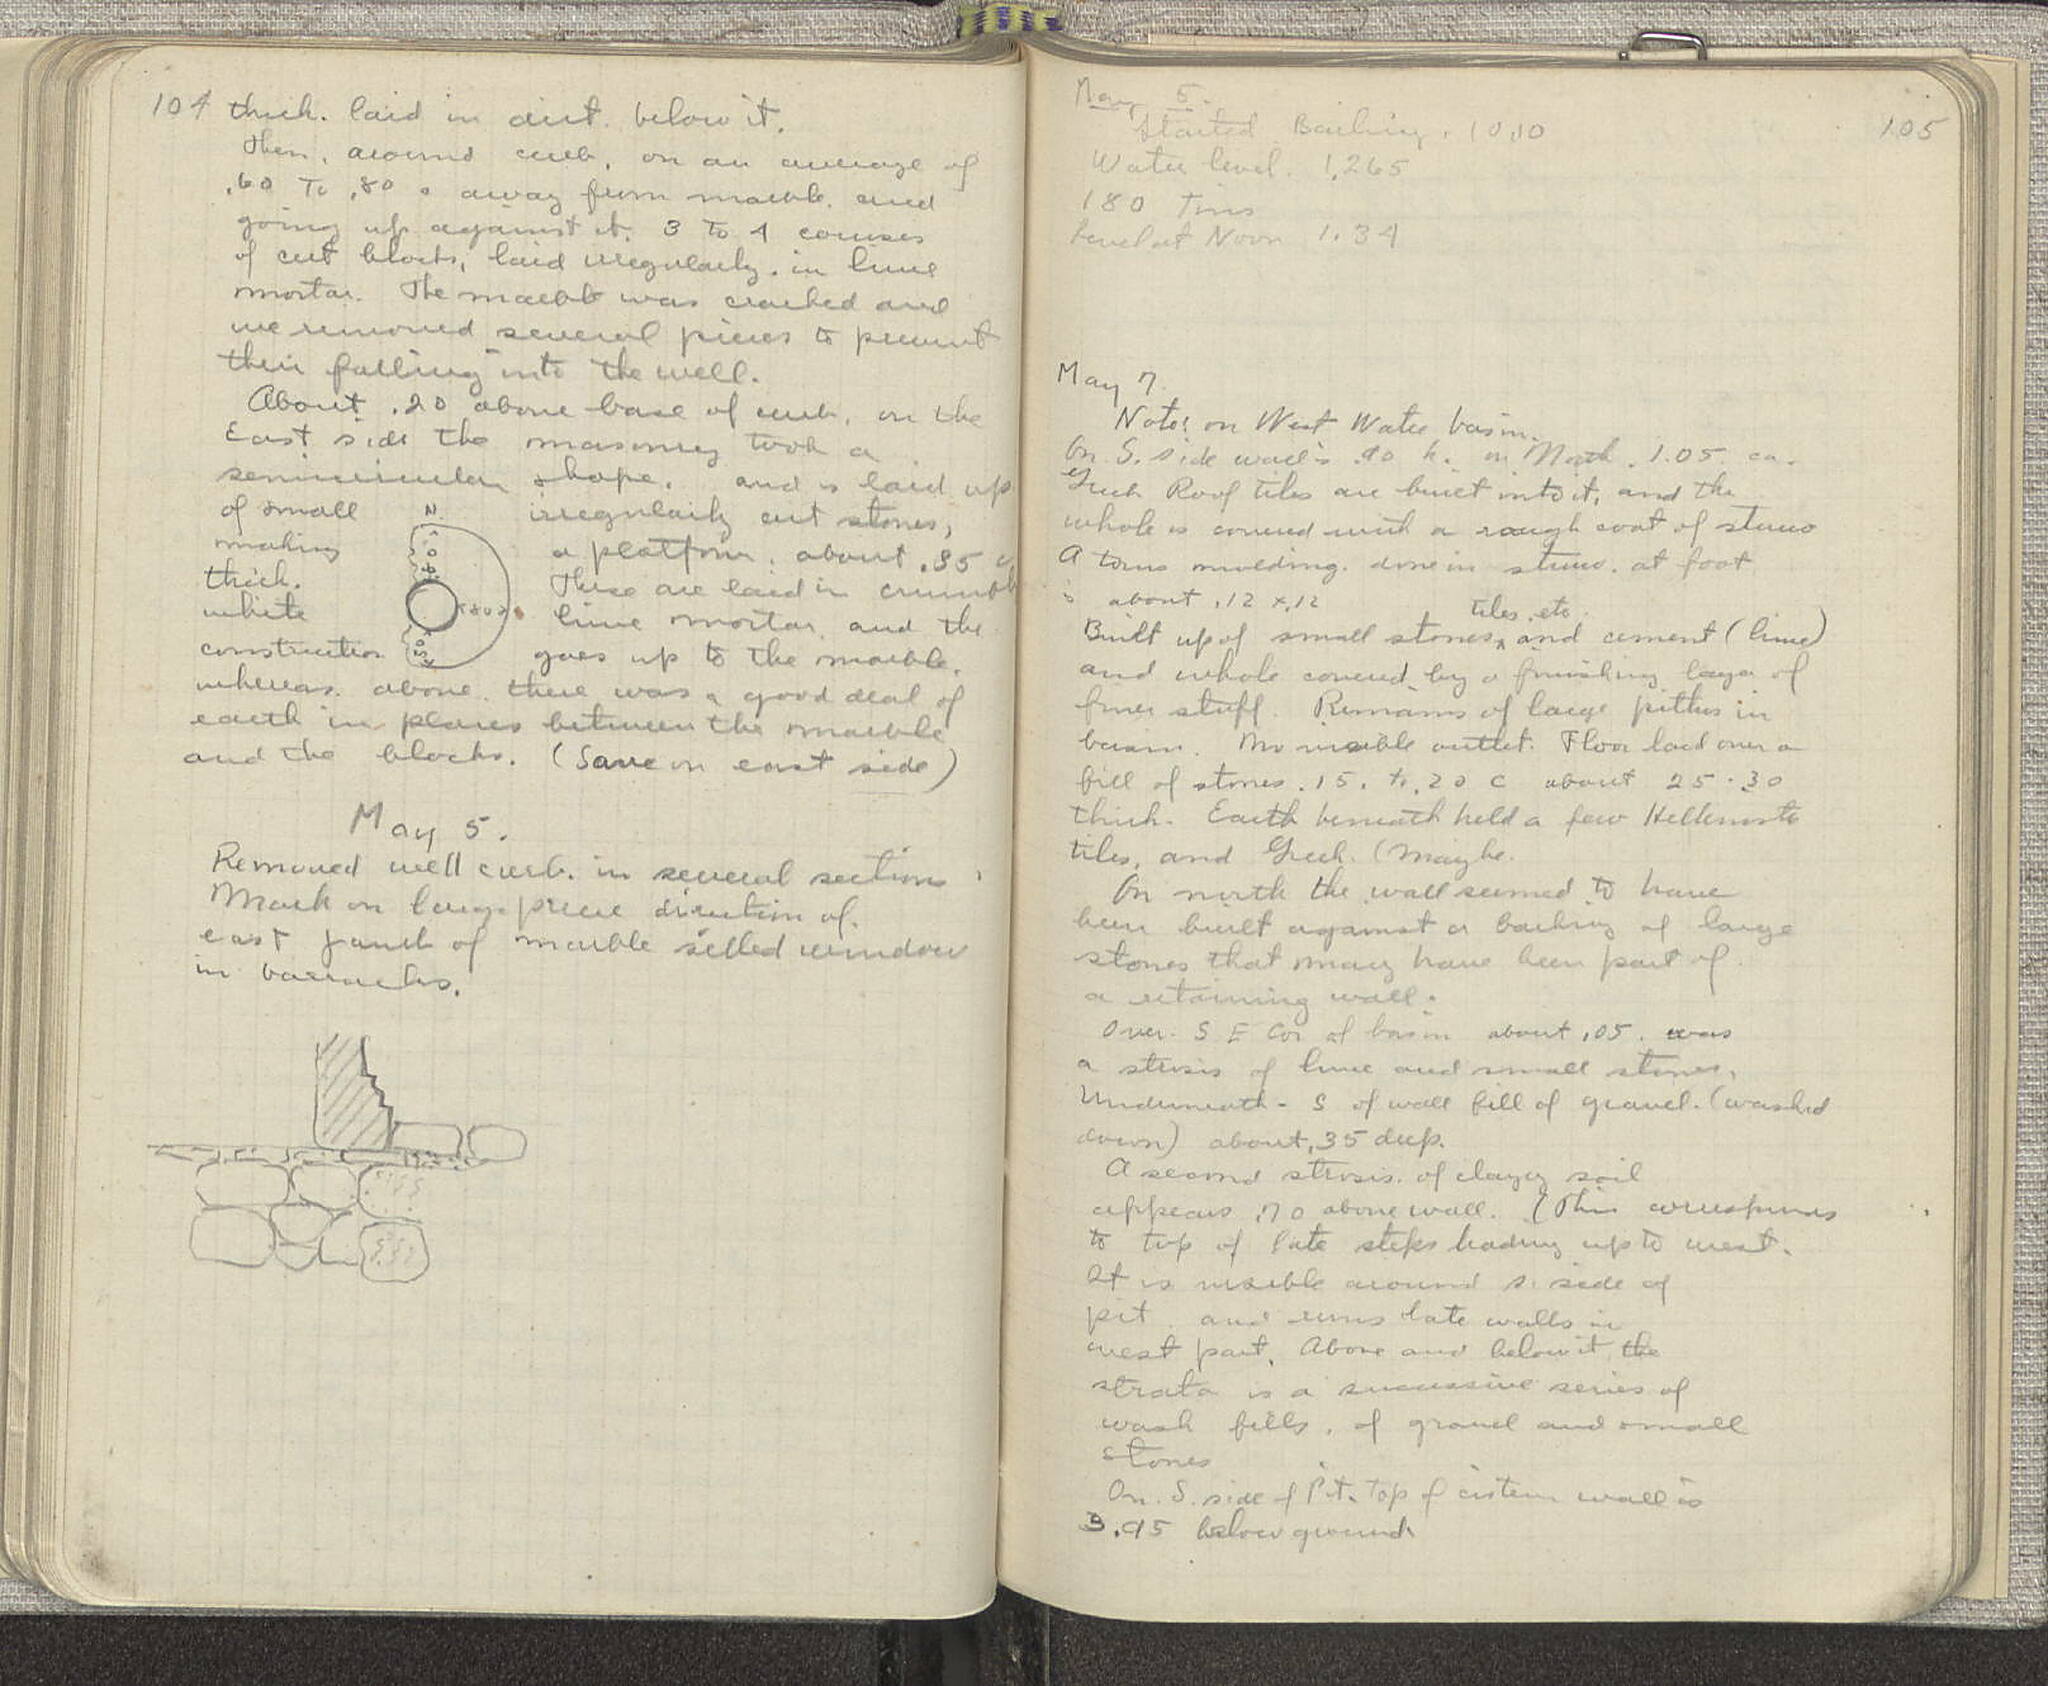 104 thick. laid in dirt. below it.
Then, around curb, on an average of
.60 to .80 c away from marble. and
going up against it. 3 to 4 courses
of cut blocks, laid irregularly. in lime
mortar. The marble was cracked and
we removed several pieces to prevent
their falling into the well.
About .20 above base of curb, on the
East side the masonry took a
semicircular shape. and is laid up
of small irregularly cut stones,
making a platform, about .35 c
thick. These are laid in crumbly
white lime mortar and the
construction goes up to the marble.
whereas above there was a good deal of
earth in places between the marble
and the blocks. (Save on east side)
N.
.80
May 5.
Removed well curb. in several sections
Mark on large piece direction of
east jamb of marble silled window
in barracks.
May 5.
105
Started Bailing. 10.10
Water level. 1.265
180 Tins
Level at Noon 1.34
May 7.
Notes on West Water basin.
On S. side wall is .90 h. on North. 1.05 ca.
Greek Roof tiles are built into it, and the
whole is covered with a rough coat of stucco
A torus moulding. done in stucco. at foot
is about .12 x .12
tiles, etc.
Built up of small stones, and cement (lime)
and whole covered by a finishing layer of
finer stuff. Remains of large pithos in
basin. No visible outlet. Floor laid over a
fill of stones .15. to .20 c about 25-30
thick. Earth beneath held a few Hellenistic
tiles, and Greek. (maybe.
On north the wall seemed to have
been built against a backing of large
stones that may have been part of
a retaining wall.
Over S E Cor of basin about .05. was
a strosis of lime and small stones.
Underneath - S of wall fill of gravel. (washed
down) about .35 deep.
A second strosis. of clayey soil
appears .70 above wall. (This corresponds
to top of late steps leading up to west.
It is visible around S. side of
pit. and runs late walls in
west part. Above and below it the
strata is a successive series of
wash fills, of gravel and small
stones
On. S. side of Pit. Top of cistern wall is
3.95 below ground.